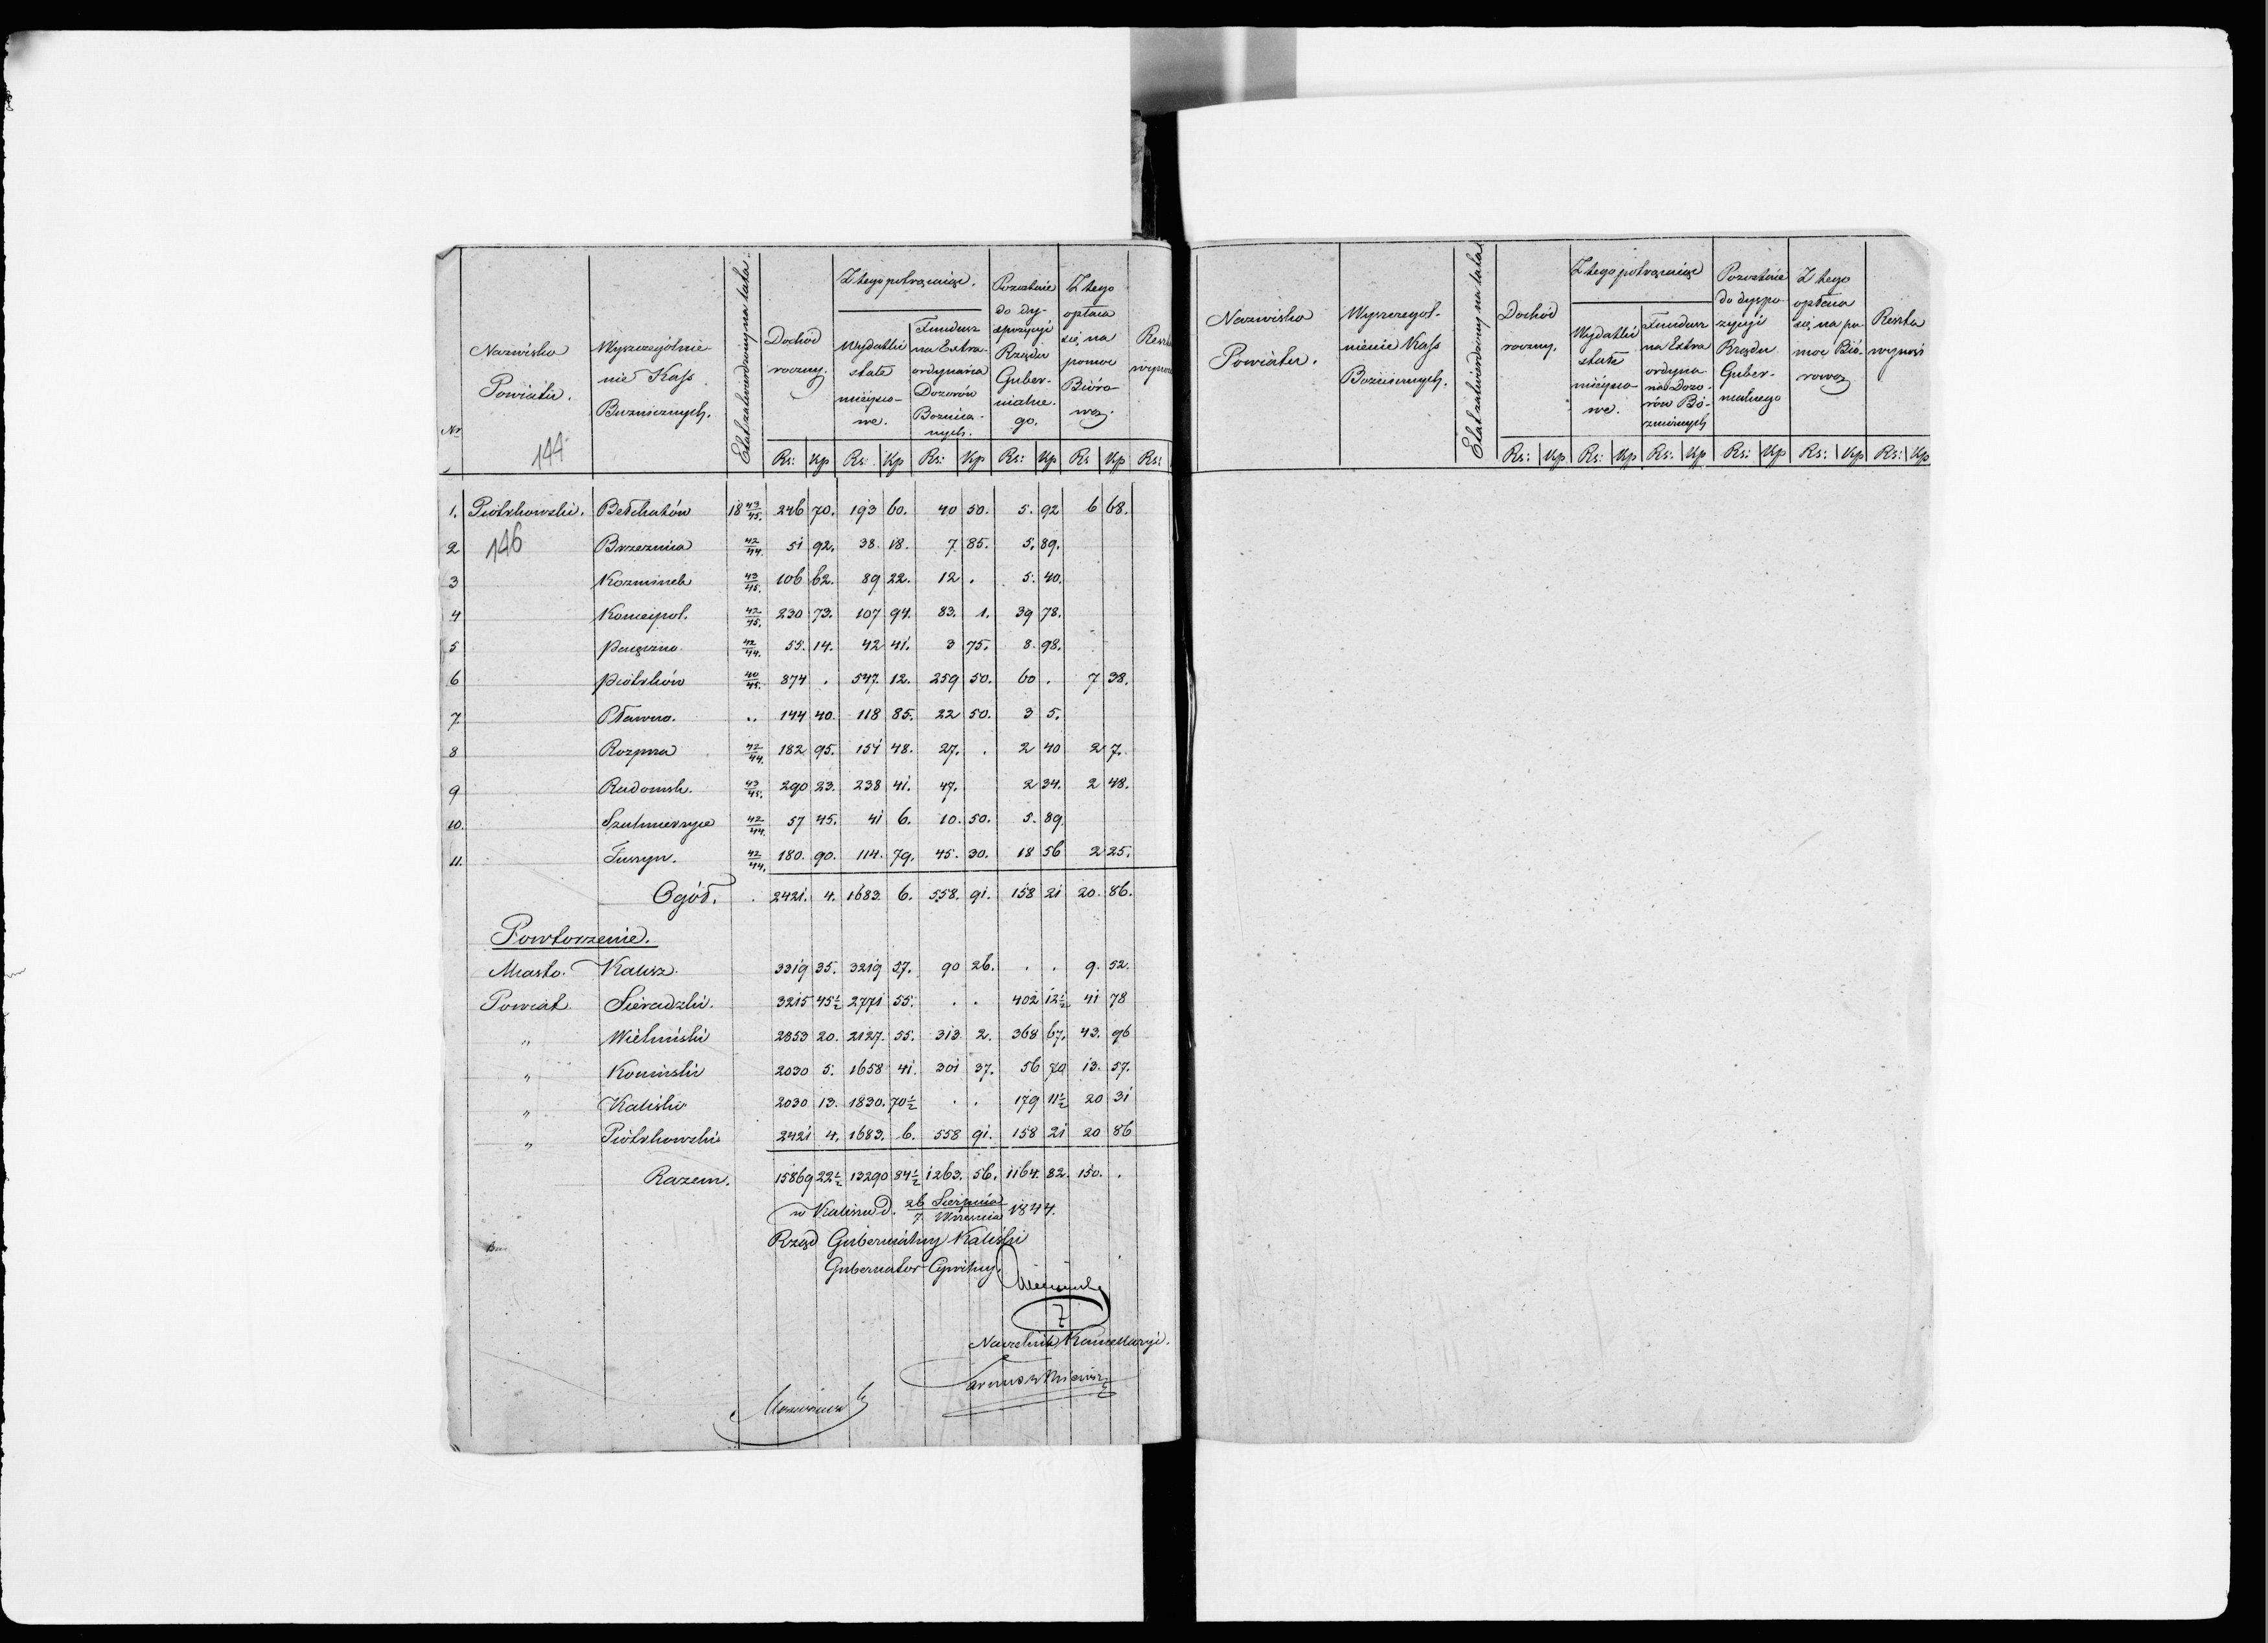 Nr
Nazwisko Powiatu.
Wyszczególnienie Kass Bóżniczych.
Etat zatwierdzony na lata.
Dochód roczny.
Z tego potrącając.
Wydatki stałe miejscowe.
Fundusz na Extraordynaria Dozorów Bożniczych.
Pozostaie do dyspozycyi Rządu Gubernialnego.
Z tego opłaca się na pomoc Biórową.
Reszta wynosi
Rs: Kp Rs: Kp Rs: Kp Rs: Kp Rs Kp Rs:
144
1. Piotrkowski. Bełchatów 18 43/45. 246 70. 193 60. 40 50. 5. 92 6 68.
146
2 Brzeznica 42/44. 51 92. 38. 18. 7. 85. 5. 89.
3 Kozminek 43/45. 106 62. 89 22. 12 . 5. 40.
4 Koniecpol. 42/45. 230 73. 107 94. 83. 1. 39 78.
5 Pajęczno 42/44. 55. 14. 42 41. 3 75. 8. 98.
6 Piotrków 40/45. 874 . 547. 12. 259 50. 60 . 7 38.
7. Pławno. .. 144 40. 118 85. 22 50. 3 5.
8 Rozprza 42/44. 182 95. 151 48. 27. . 2 40 2 7.
9 Radomsk. 43/45. 290 23. 238 41. 47. 2 34. 2 48.
10. Szulmierzyce 42/44. 57 45. 41 6. 10. 50. 5. 89.
11. Tuszyn. 42/44. 180. 90. 114. 79. 45. 30. 18 56 2 25.
Ogół. 2421. 4. 1683. 6. 558. 91. 158 21 20. 86.
Powtorzenie.
Miasto. Kalisz. 3319 35. 3219 57. 90 26. . . 9. 52.
Powiat Sieradzki. 3215 45½ 2771 55. . . 402 12½ 41 78
" Wieluński 2853 20. 2127. 55. 313 2. 368 67. 43. 96
" Koniński 2030 5. 1658 41. 301 37. 56 70 13. 57.
" Kaliski 2030 13. 1830. 70½ . . 179 11½ 20 31
" Piotrkowski 2421 4. 1683. 6. 558 91. 158 21 20 86
Razem. 15869 22½ 13290 84½ 1263. 56. 1164. 82. 150. .
w Kaliszu d. 26 Sierpnia/7 Września 1844.
Rząd Gubernialny Kaliski
Gubernator Cywilny.
Naczelnik Kancellaryi.
Nazwisko Powiatu.
Wyszczegolnienie Kass Boznicznych.
Etat zatwierdzony na lata
Dochód roczny.
Z tego potrącaiąc
Wydatki stałe miéjscowe.
Fundusz na Extra ordynaria Dozorów Bóżnicznych
Pozostaie do dyspozycyi Rządu Gubernialnego
Z tego opłaca się na pomoc Biórową
Reszta wynosi
Rs: Kp Rs: Kp Rs: Kp Rs: Kp Rs: Kp Rs: Kp